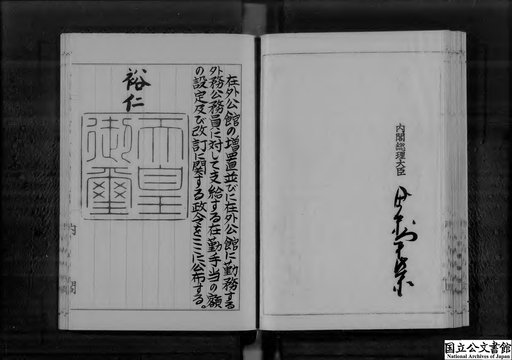 内閣総理大臣
在外公館の増置並びに在外公館に勤務する
外務公務員に対して支給する在勤手当の額
の設定及び改訂に関する政令をここに公布する。
裕仁
天皇
御璽
内閣
国立公文書館
National Archives of Japan